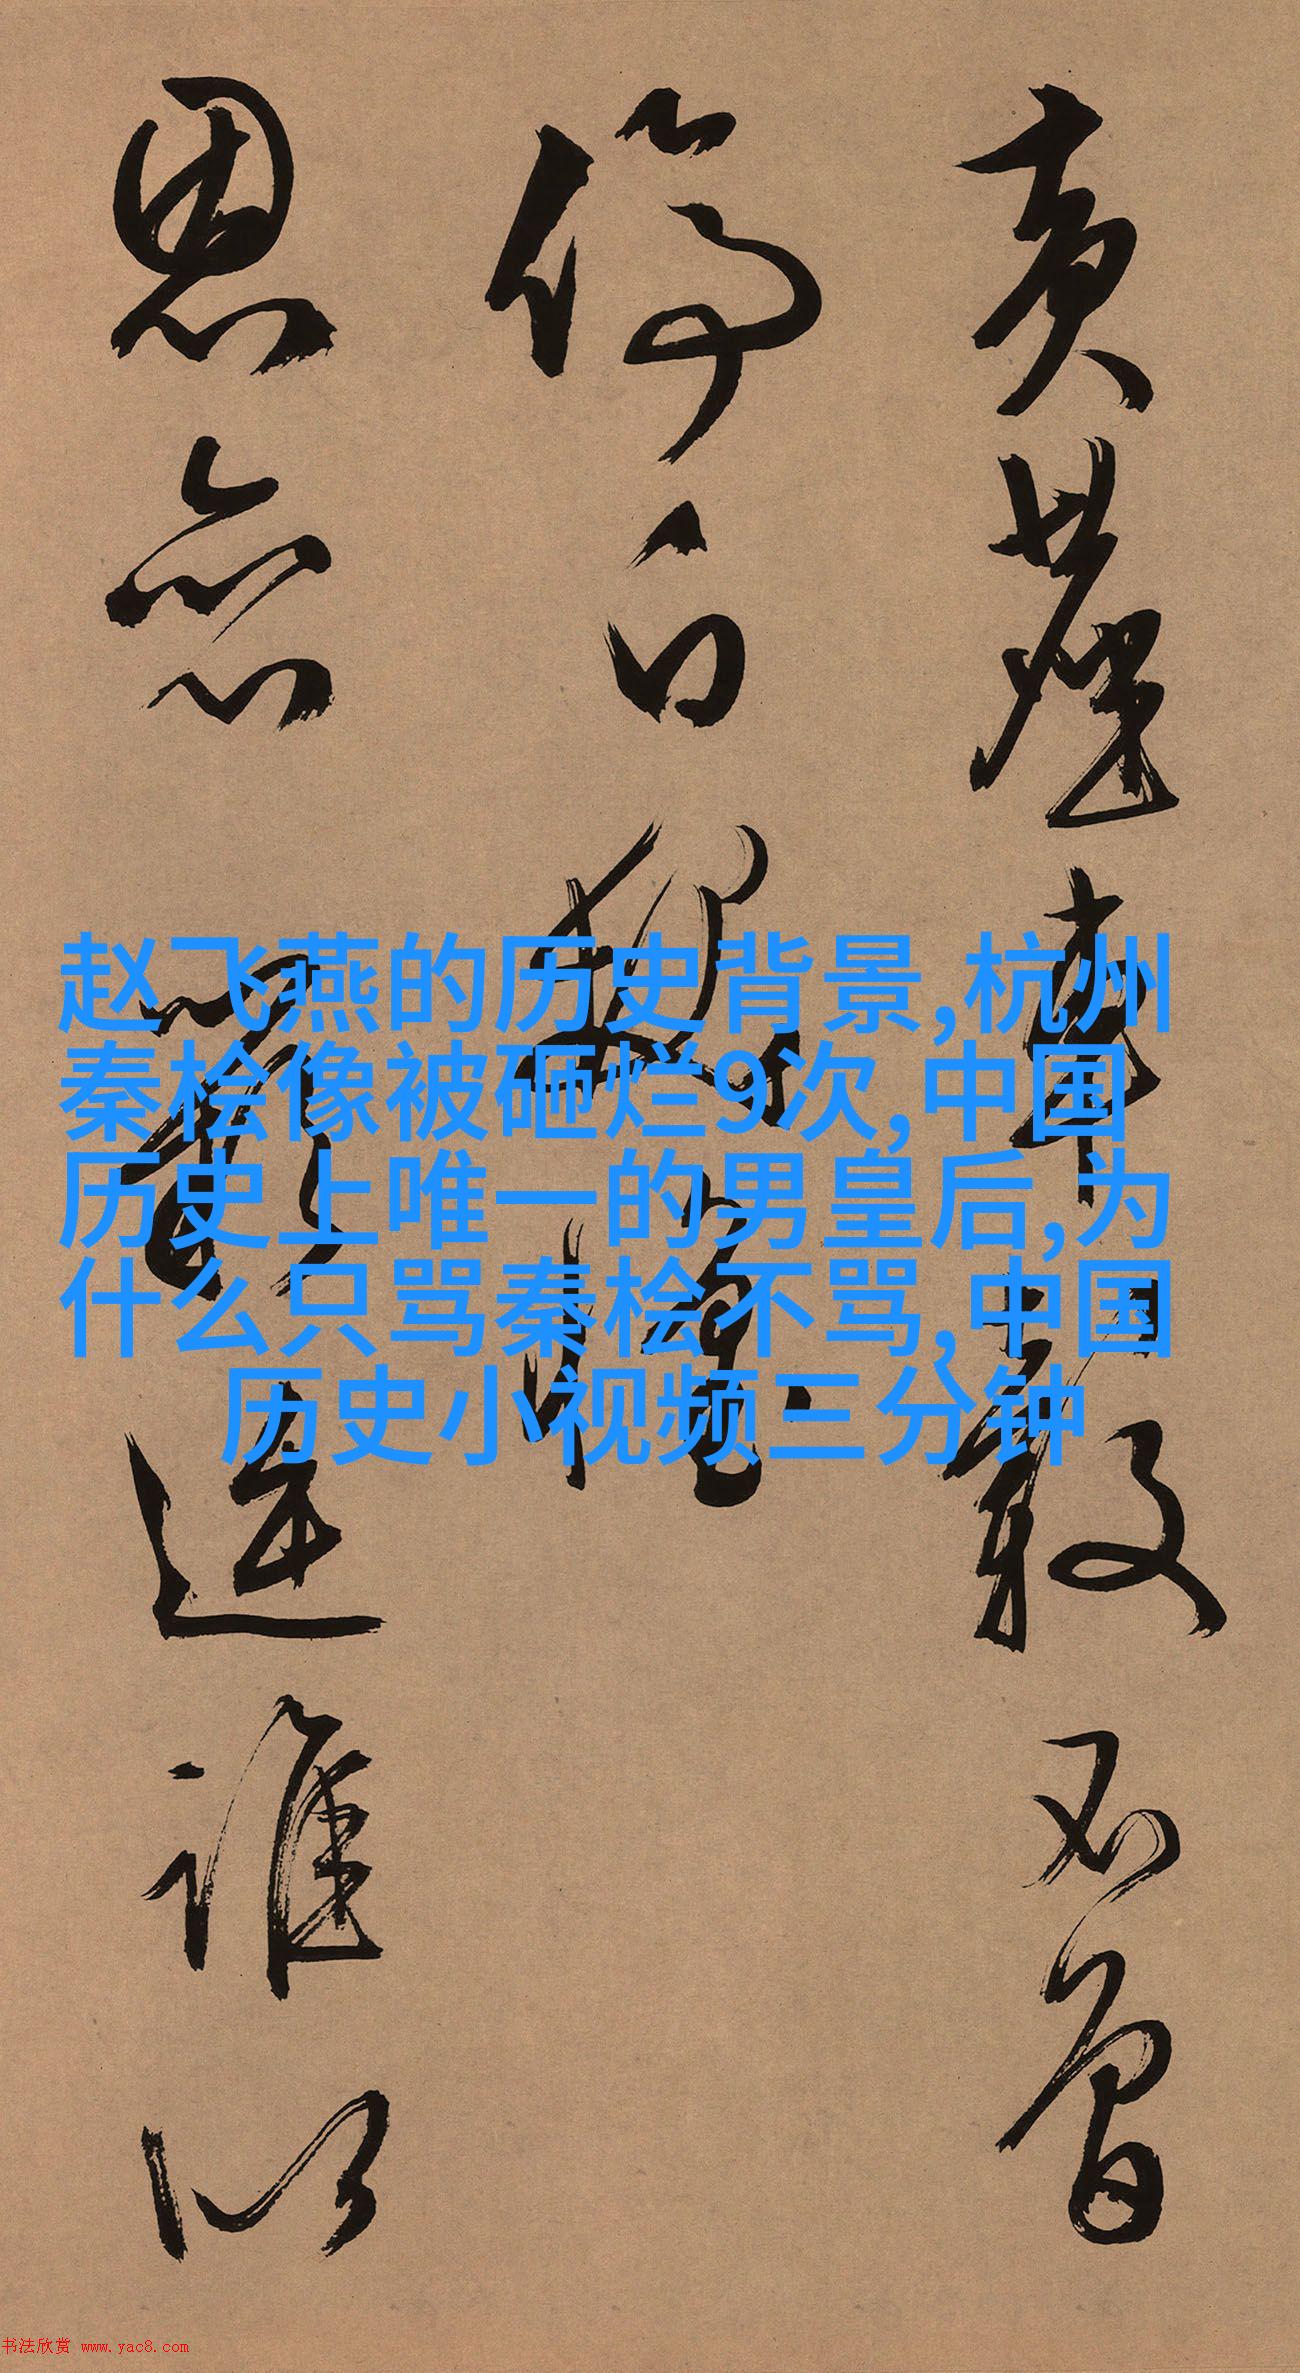 黄塵車轂不曾
停白
恩 誰以
赵飞燕的历史背景,杭州
秦桧像被砸烂9次,中国
历史上唯一的男皇后,为
什么只骂秦桧不骂,中国
历史小视频三分钟
书法欣赏 www.yac8.com